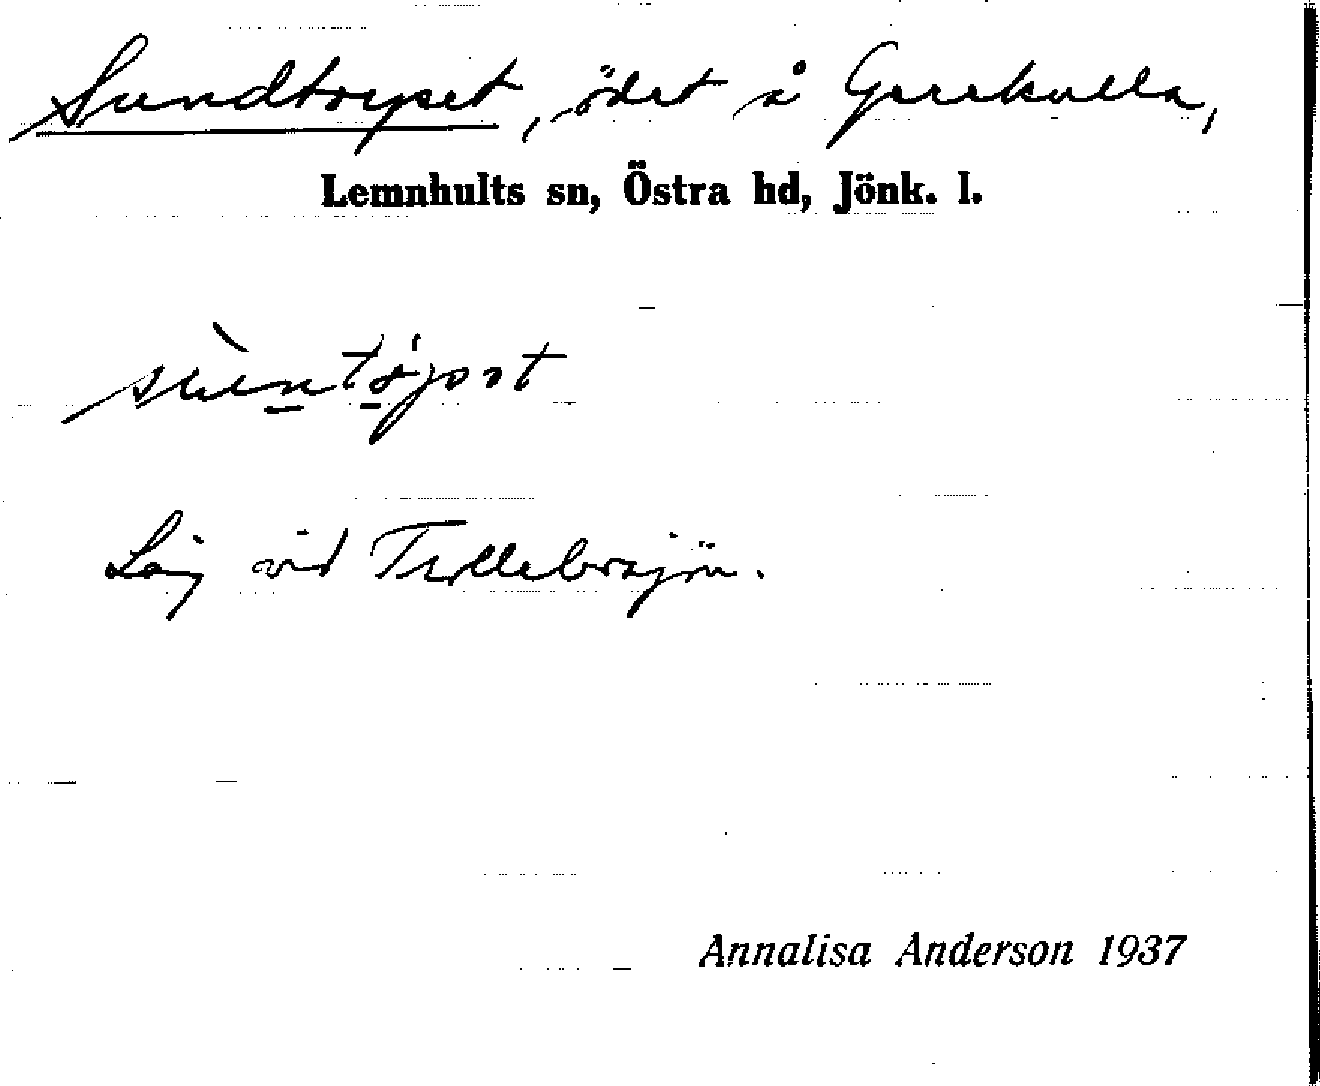 Sundtorpet, ödet å Grrekulla,
Lemnhults sn, Östra hd, Jönk. l.
Låg vid Trollebosjön.
Annalisa Anderson 1937